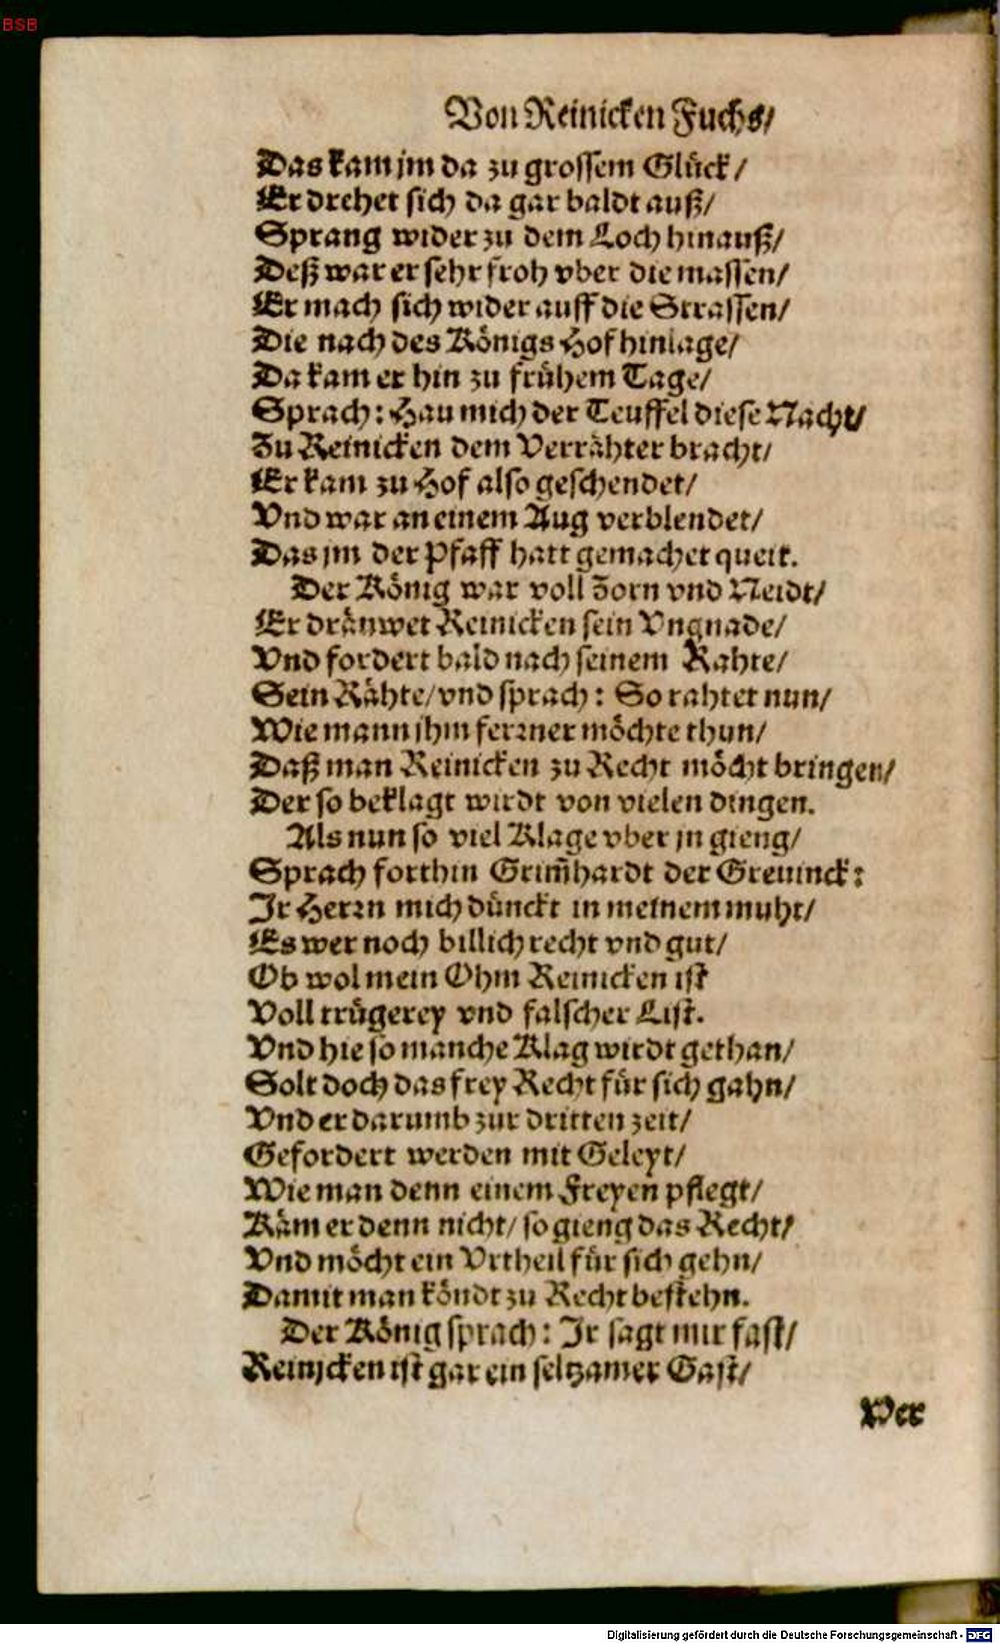 BSB
Von Reinicken Fuchs/
Das kam jm da zu grossem Glück/
Er drehet sich da gar baldt auß/
Sprang wider zu dem Loch hinauß/
Deß war er sehr froh vber die massen/
Er mach sich wider auff die Strassen/
Die nach des Königs Hof hinlage/
Da kam er hin zu frühem Tage/
Sprach: Hau mich der Teuffel diese Nacht/
Zu Reinicken dem Verrähter bracht/
Er kam zu Hof also geschendet/
Vnd war an einem Aug verblendet/
Das jm der Pfaff hatt gemachet queit.
Der König war voll Zorn vnd Neidt/
Er dräuwet Reinicken sein Vngnade/
Vnd fordert bald nach seinem Rahte/
Sein Rähte/ vnd sprach: So rahtet nun/
Wie mann jhm ferrner möchte thun/
Daß man Reinicken zu Recht möcht bringen/
Der so beklagt wirdt von vielen dingen.
Als nun so viel Klage vber jn gieng/
Sprach forthin Grim̃hardt der Greuinck:
Jr Herrn mich dünckt in meinem muht/
Es wer noch billich recht vnd gut/
Ob wol mein Ohm Reinicken ist
Voll trügerey vnd falscher List.
Vnd hie so manche Klag wirdt gethan/
Solt doch das frey Recht für sich gahn/
Vnd er darumb zur dritten zeit/
Gefordert werden mit Geleyt/
Wie man denn einem Freyen pflegt/
Käm er denn nicht/ so gieng das Recht/
Vnd möcht ein Vrtheil für sich gehn/
Damit man köndt zu Recht bestehn.
Der König sprach: Jr sagt mir fast/
Reinicken ist gar ein seltzamer Gast/
Wer
Digitalisierung gefördert durch die Deutsche Forschungsgemeinschaft - DFG